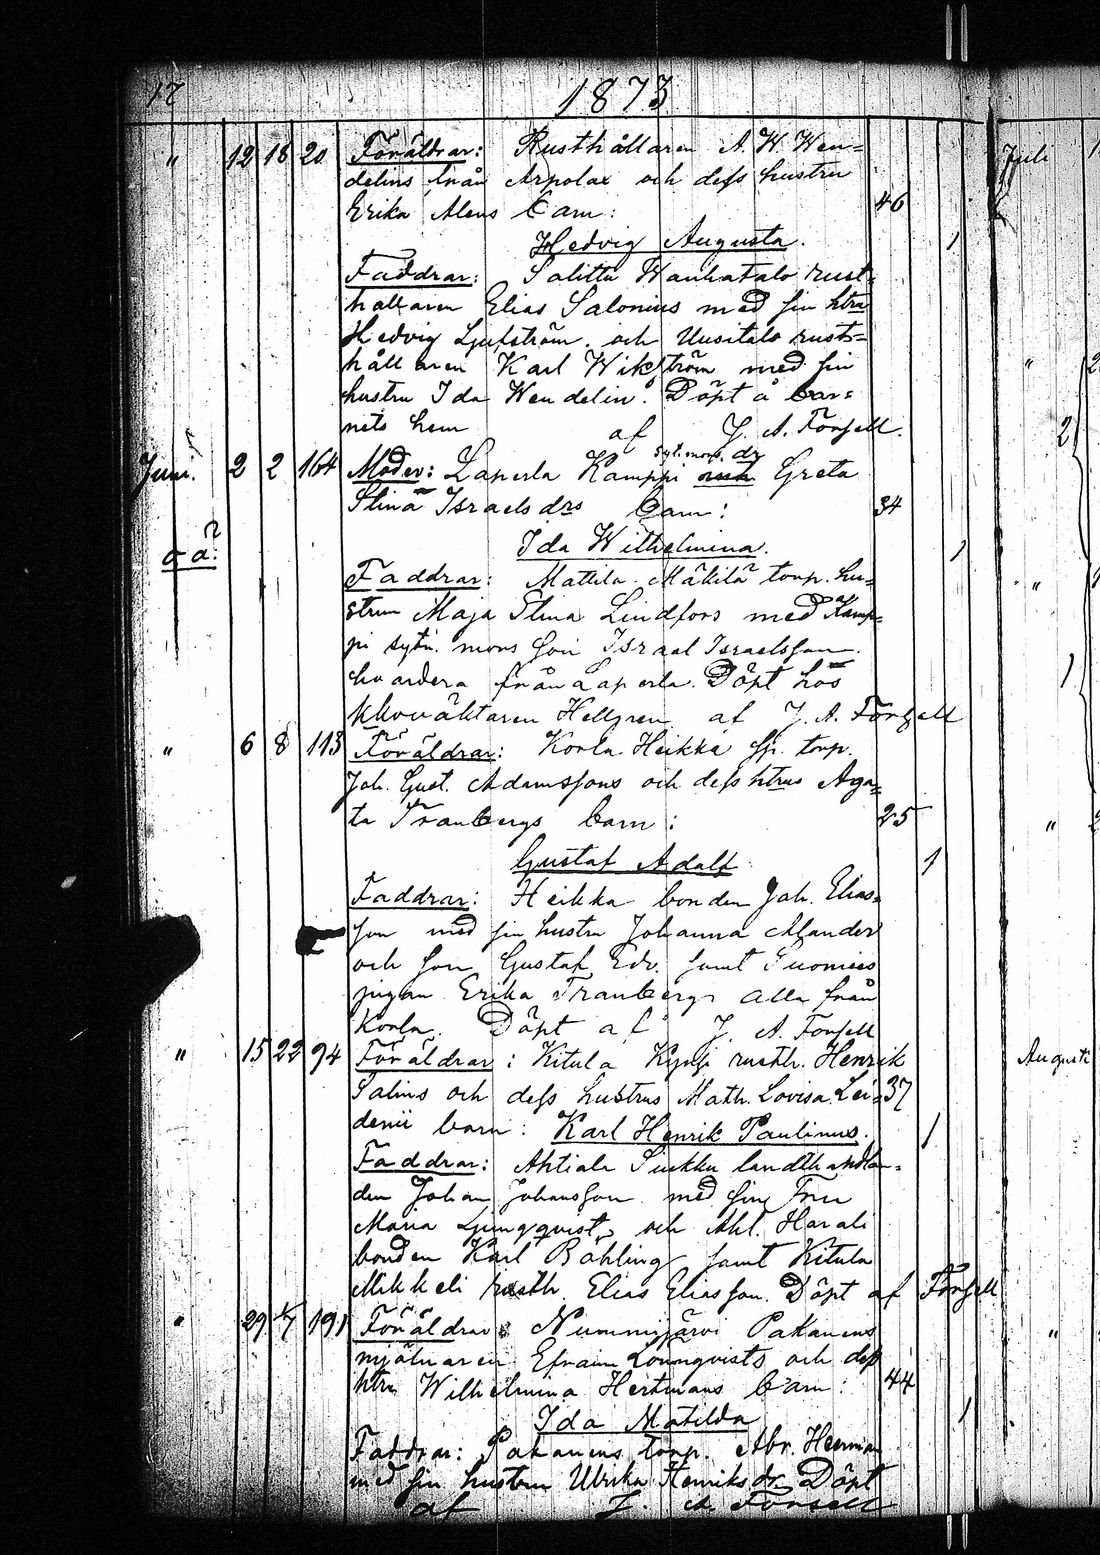 17
1873
" 12 18 20 Föräldrar: Rusthållaren A. W. Wen=
delins från Arpolax och dess hustru
Erika Alens barn: 46
Hedvig Augusta. 1
Faddrar: Wanhatalo rust=
hållaren Elias Salonius med sin htru
Hedvig Ljufström och Uusitalo rust=
hållaren Karl Wikström med sin
hustru Ida Wendelin. Döpt å bar=
nets hem af J. A. Forsell.
Juni. 2 2 164 Moder: Laperla Kamppi sytn. mors dr Greta
Stina Israelsdrs barn: 34
o ä:
Ida Wilhelmina. 1
Faddrar: Mattila Mäkilä torp. hu=
strun Maja Stina Lindfors med Kamp=
pi sytn. mors son Israel Israelsson
hvardera från Laperla. Döpt hos
Hellgren af J. A. Forsell
" 6 8 113 Föräldrar: Korla Heikka sp. torp.
Joh. Gust. Adamssons och dess htrus Aga=
ta Tranbergs barn: 25
Gustaf Adolf 1
Faddrar: Heikka bonden Joh. Elias=
son med sin hustru Johanna Alander
och son Gustaf Edv. samt
pigan Erika Tranberg alla från
Korla. Döpt af J. A. Forsell
" 15 22 94 Föräldrar: Kitula rusth. Henrik
Salins och dess hustrus Math. Lovisa Lei= 37
denii barn: Karl Henrik Paulinus. 1
Faddrar: Ahtiala landthandlan=
den Johan Johansson med sin Fru
Maria Ljungqvist, och Ahl. Harali
bonden Karl Båhling samt Kitula
Mikkeli rusth. Elias Eliasson. Döpt af Forsell
" 29 1/7 191 Föräldrar: Nummijärvi Pakanens
mjölnaren Efraim Lönnqvists och dess
htru Wilhelmina Hertmans barn: 44
Ida Matilda 1
Faddrar: Pakanens torp. Abr. Herman
med sin hustru Ulrika Henriksdr. Döpt
af J. A. Forsell
Juli
Augusti